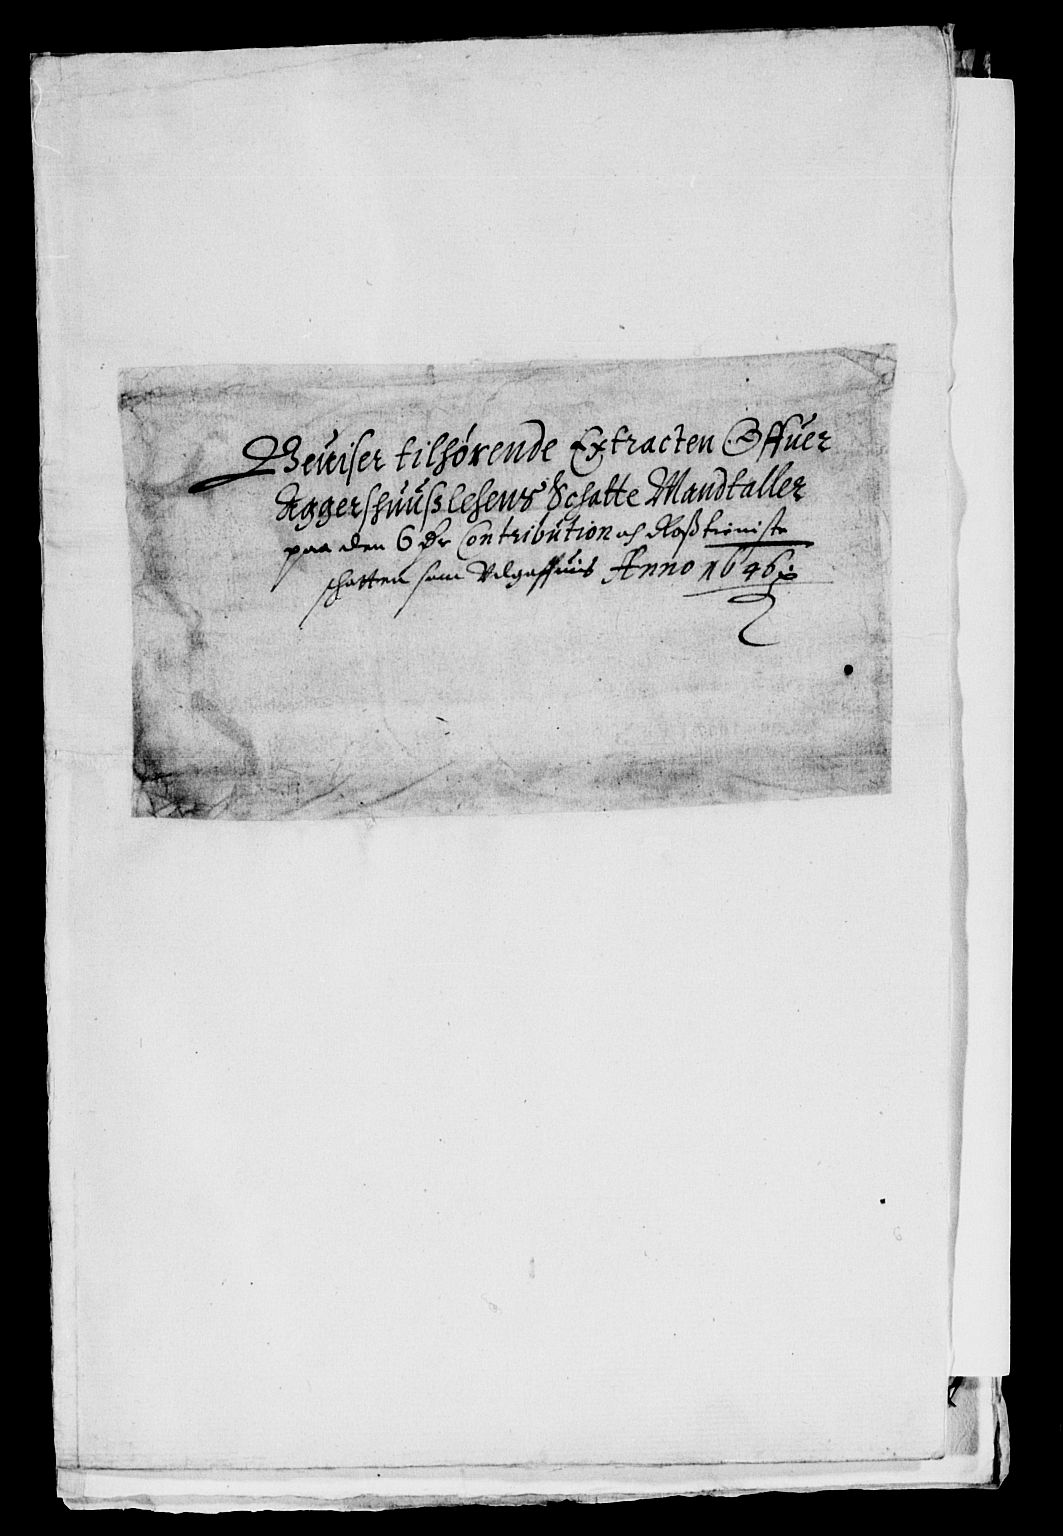 Beuiser tilhørende Extracten Offuer
Aggershuuß lehens Schatte Mandtaller
paa den 6 dr Contribution och Roßtieniste
schatten som Udgaffuis Anno 1646